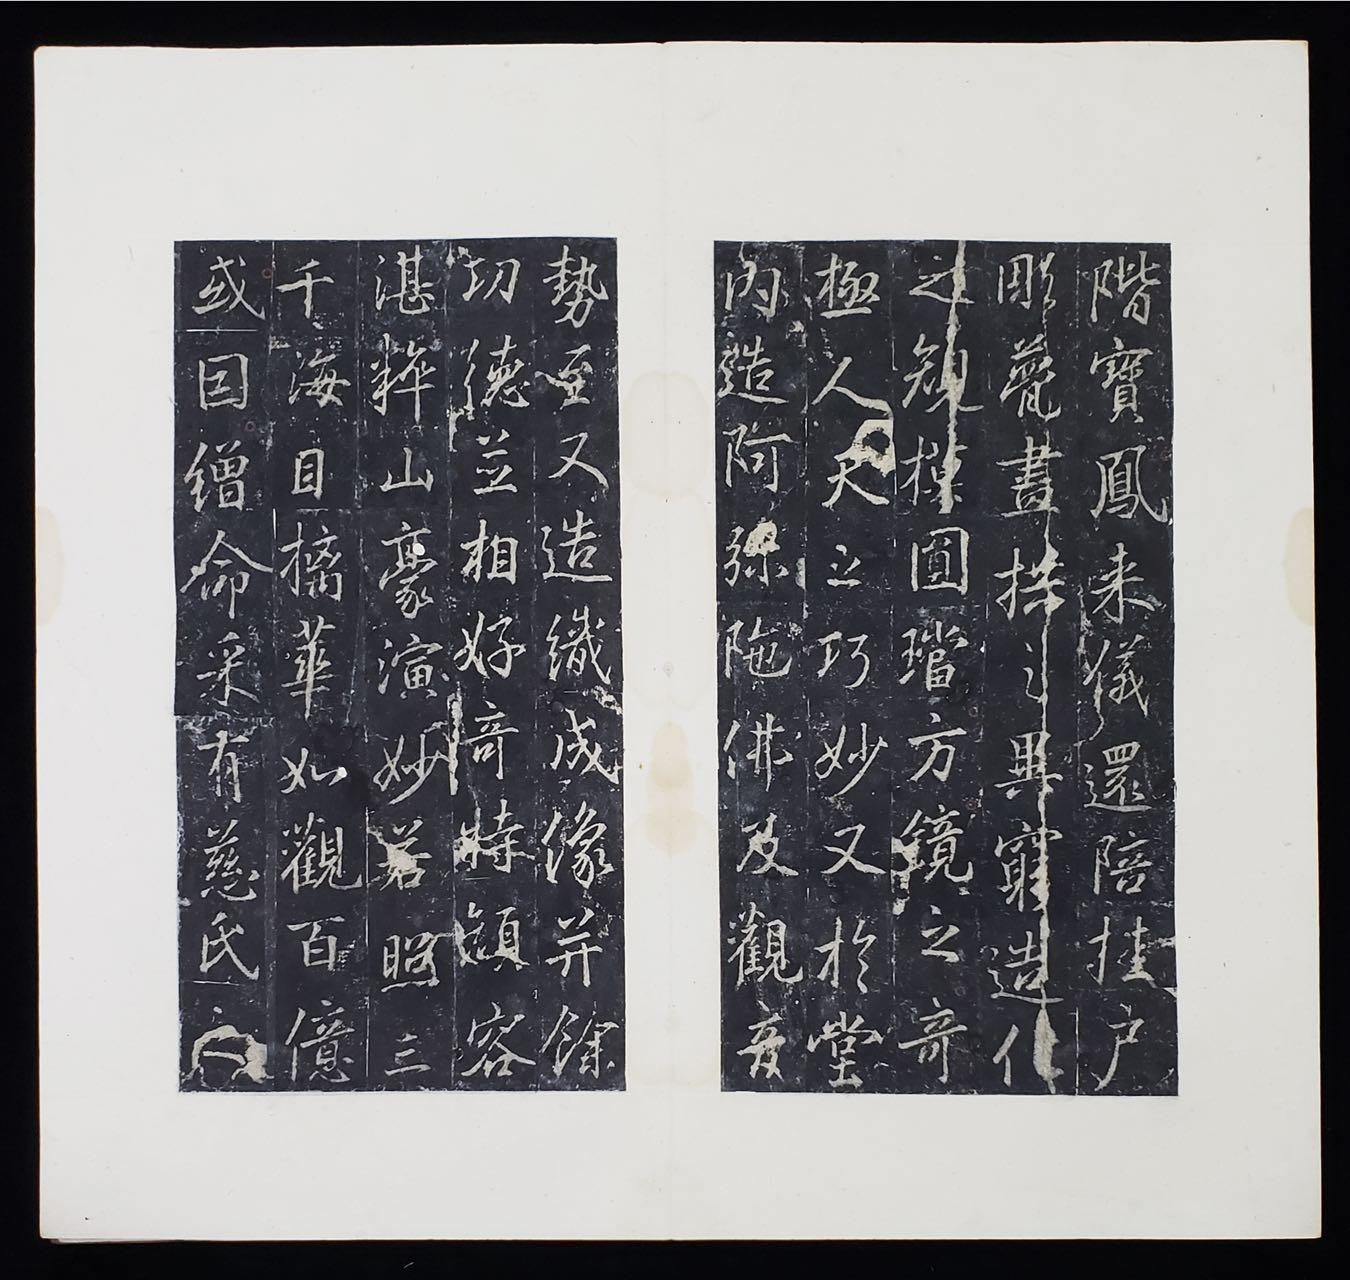 階寶鳳来儀還陪桂户
彫甍畫栱之異窮造化
之規模圓璫方鏡之奇
極人天之巧妙又於堂
内造阿弥陁佛及觀音
勢至又造織成像并餘
功德並相好奇特顔容
湛粹山豪演妙若照三
千海目摛華如觀百億
或因繒命采有慈氏